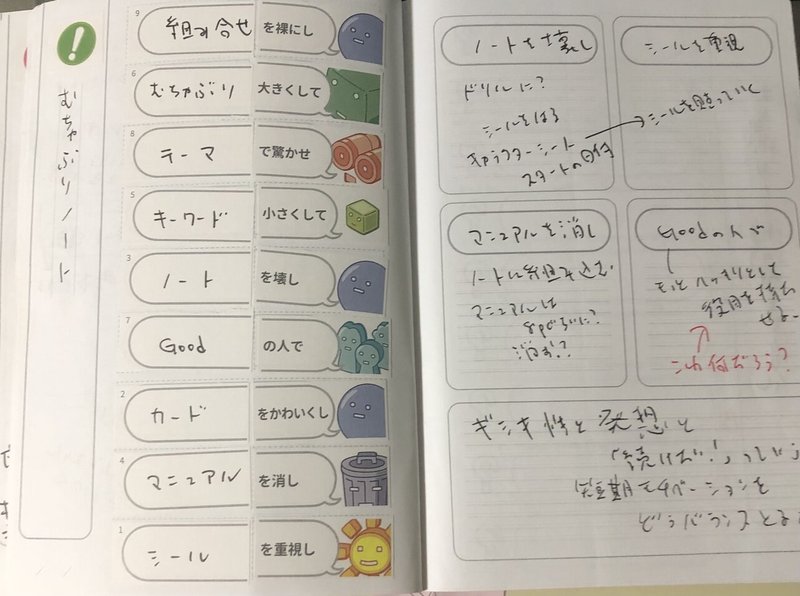 むちゃぶりノート
9
組み合せ を裸にし
6
むちゃぶり 大きくして
8
テーマ で驚かせ
5
キーワード 小さくして
3
ノート を壊し
7
Good の人で
2
カード をかわいくし
4
マニュアル を消し
1
シール を重視し
ノートを壊し
ドリルに?
シールをはる
キャラクターシート
スタートの日付
シールを重視
シールを貼っていく
マニュアルを消し
ノートに組み込む
マニュアルは
8pぐらいに?
消す?
Goodの人で
もっとハッキリとした
役目を持た
せる
これ何だろう?
ギシキ性と発想と
「続けば!」っていう
短期モチベーションを
どうバランスとるか